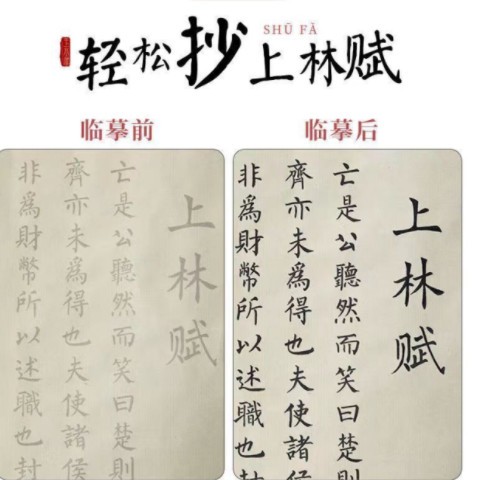 SHŪ FÀ
轻松抄上林赋
临摹前
上林赋
亡是公聽然而笑曰楚則
齊亦未爲得也夫使諸侯
非爲財幣所以述職也封
临摹后
上林赋
亡是公聽然而笑曰楚則
齊亦未爲得也夫使諸侯
非爲財幣所以述職也封